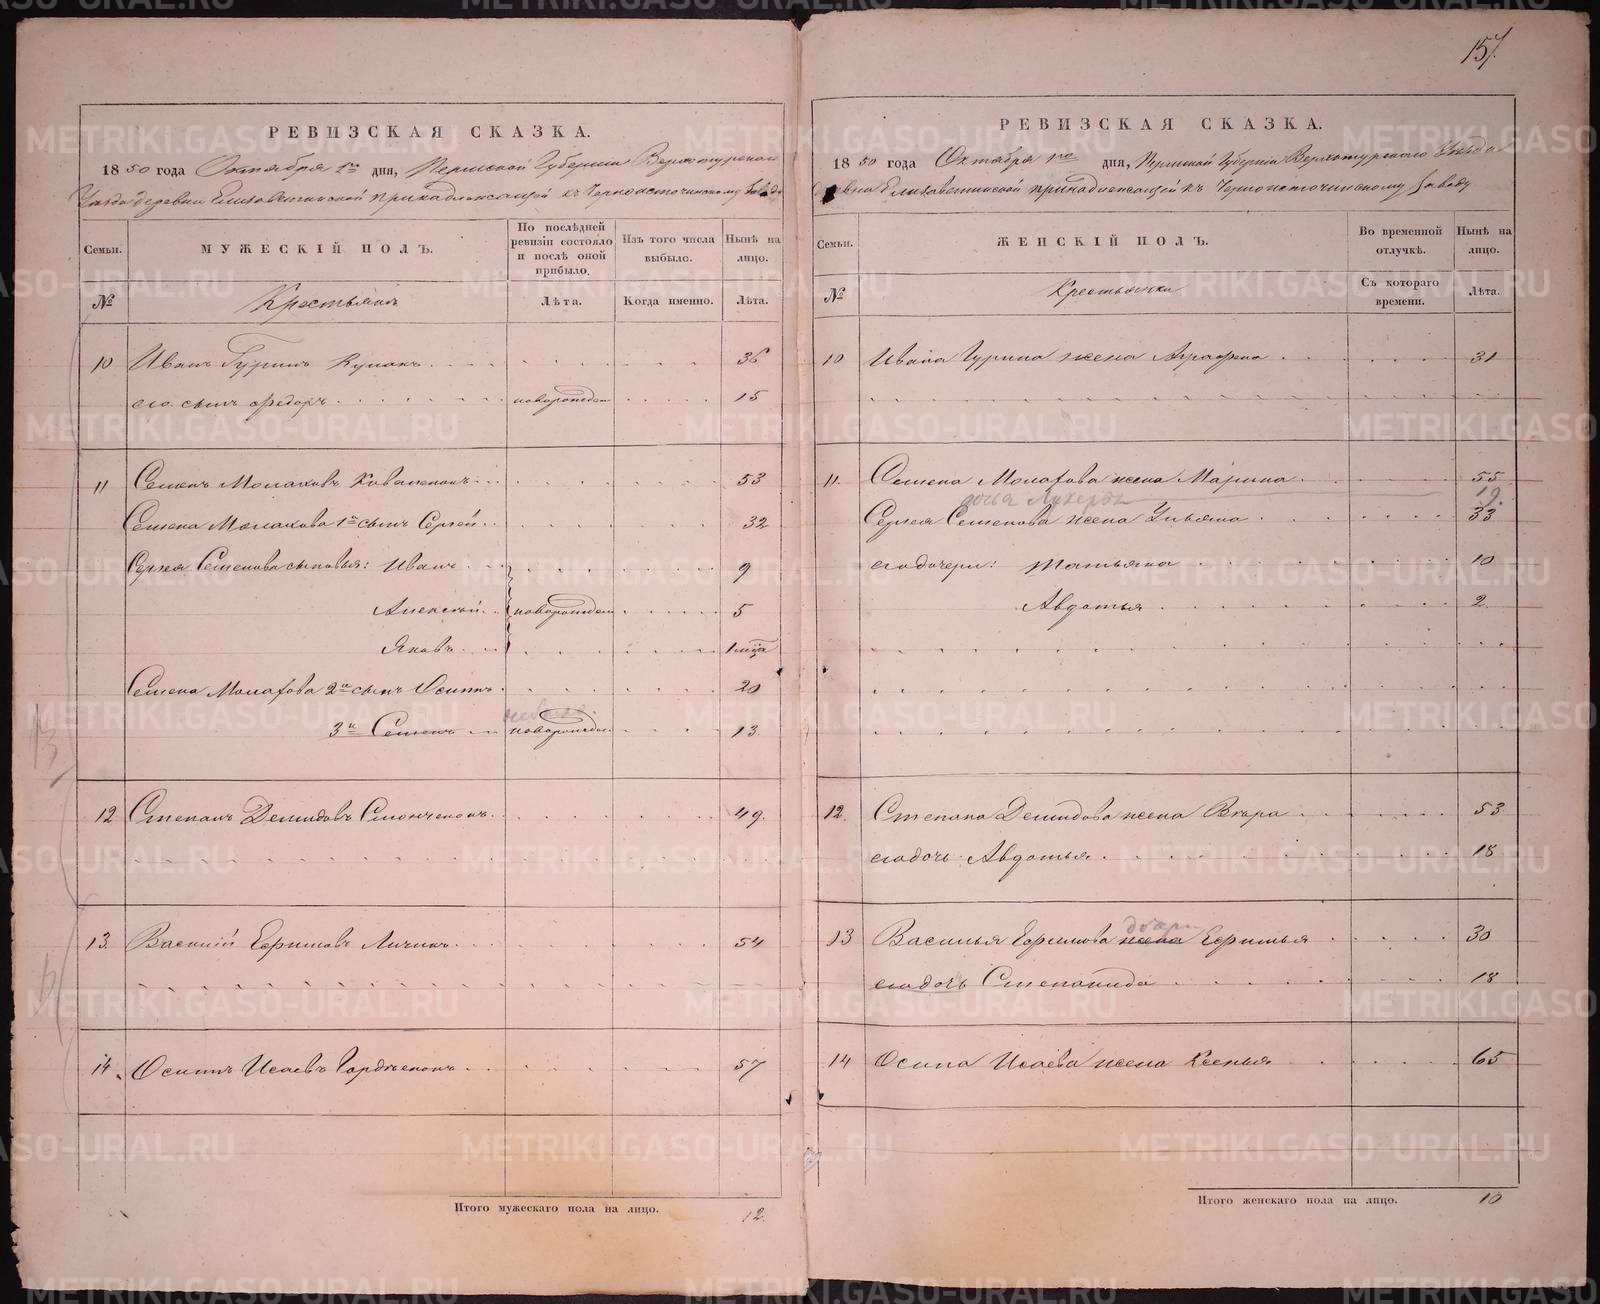 157.
РЕВИЗСКАЯ СКАЗКА.
1850 года Октября 1го дня, Пермской Губерніи Верхотурскаго
Уѣзда деревни Елизаветинской принадлежащей къ Черноисточинскому Заводу
Семьи. МУЖЕСКІЙ ПОЛЪ. По послѣдней ревизіи состояло и послѣ оной прибыло. Изъ того числа выбыло. Нынѣ на лицо.
№ Крестьянъ Лѣта. Когда именно. Лѣта.
10 Иванъ Гуринъ 36
его сынъ Федоръ новорожден 15
11 Семенъ Малаховъ Коваленокъ 53
Семена Малахова 1й сынъ Сергей 32
Сергея Семенова сыновья: Иванъ 9
Алексей новорожден 5
Яковъ 1 мѣца
Семена Малахова 2й сынъ Осипъ 20
3й Семенъ новорожден 13
12 Степанъ Демидовъ 49.
13. Василій Ефимовъ 54
14. Осипъ Исаевъ Гордѣенокъ 57
Итого мужескаго пола на лицо. 12.
РЕВИЗСКАЯ СКАЗКА.
1850 года Октября 1го дня, Пермской Губерніи Верхотурскаго Уѣзда
деревни Елизаветинской принадлежащей къ Черноисточинскому Заводу
Семьи. ЖЕНСКІЙ ПОЛЪ. Во временной отлучкѣ. Нынѣ на лицо.
№ Крестьянки Съ котораго времени. Лѣта.
10 Ивана Гурина жена Аграфена 31
11. Семена Малахова жена Марина 55
дочь 19.
Сергея Семенова жена Ульяна 33
его дочери: Татьяна 10
Авдотья 2
12. Степана Демидова жена Вѣра 53
его дочь Авдотья 18
13 Василья Ефимова жена Ефимья 30
его дочь Степанида 18
14 Осипа Исаева жена Ксенья 65
Итого женскаго пола на лицо. 10
METRIKI.GASO-URAL.RU